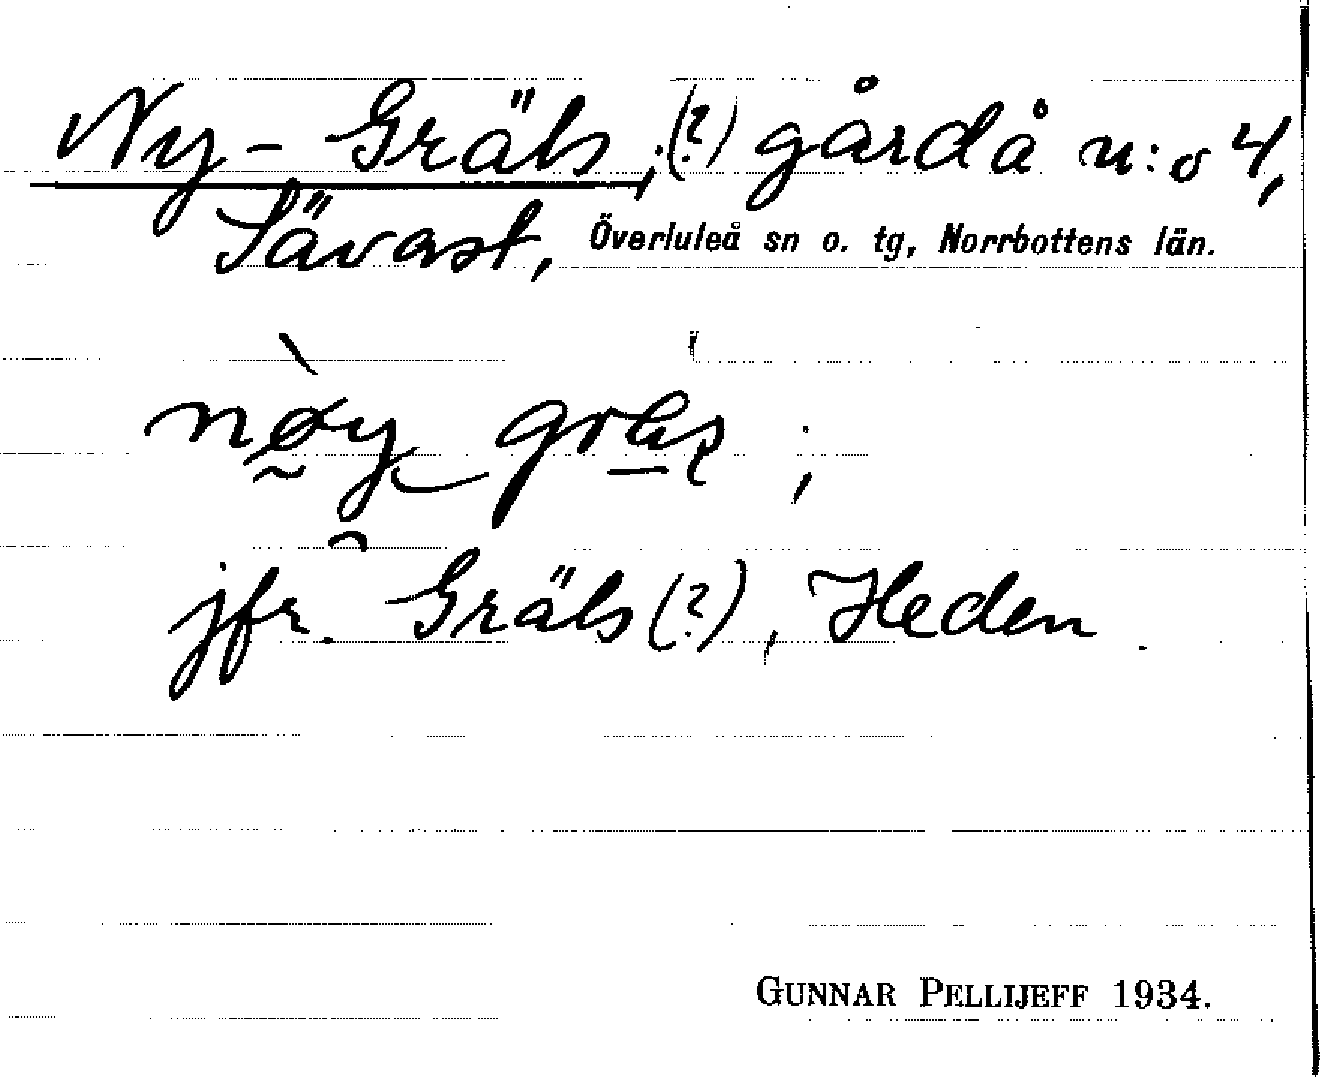 Ny-Gräls, (?) gård å n:o 4,
Sävast, Överluleå sn o. tg, Norrbottens län.
jfr. Gräls (?), Heden.
GUNNAR PELLIJEFF 1934.